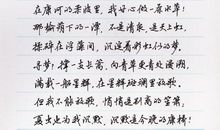 在康河的柔波里，我甘心做一条水草！
那榆荫下的一潭，不是清泉，是天上虹，
揉碎在浮藻间，沉淀着彩虹似的梦。
寻梦？撑一支长篙，向青草更青处漫溯，
满载一船星辉，在星辉斑斓里放歌。
但我不能放歌，悄悄是别离的笙箫；
夏虫也为我沉默，沉默是今晚的康桥！